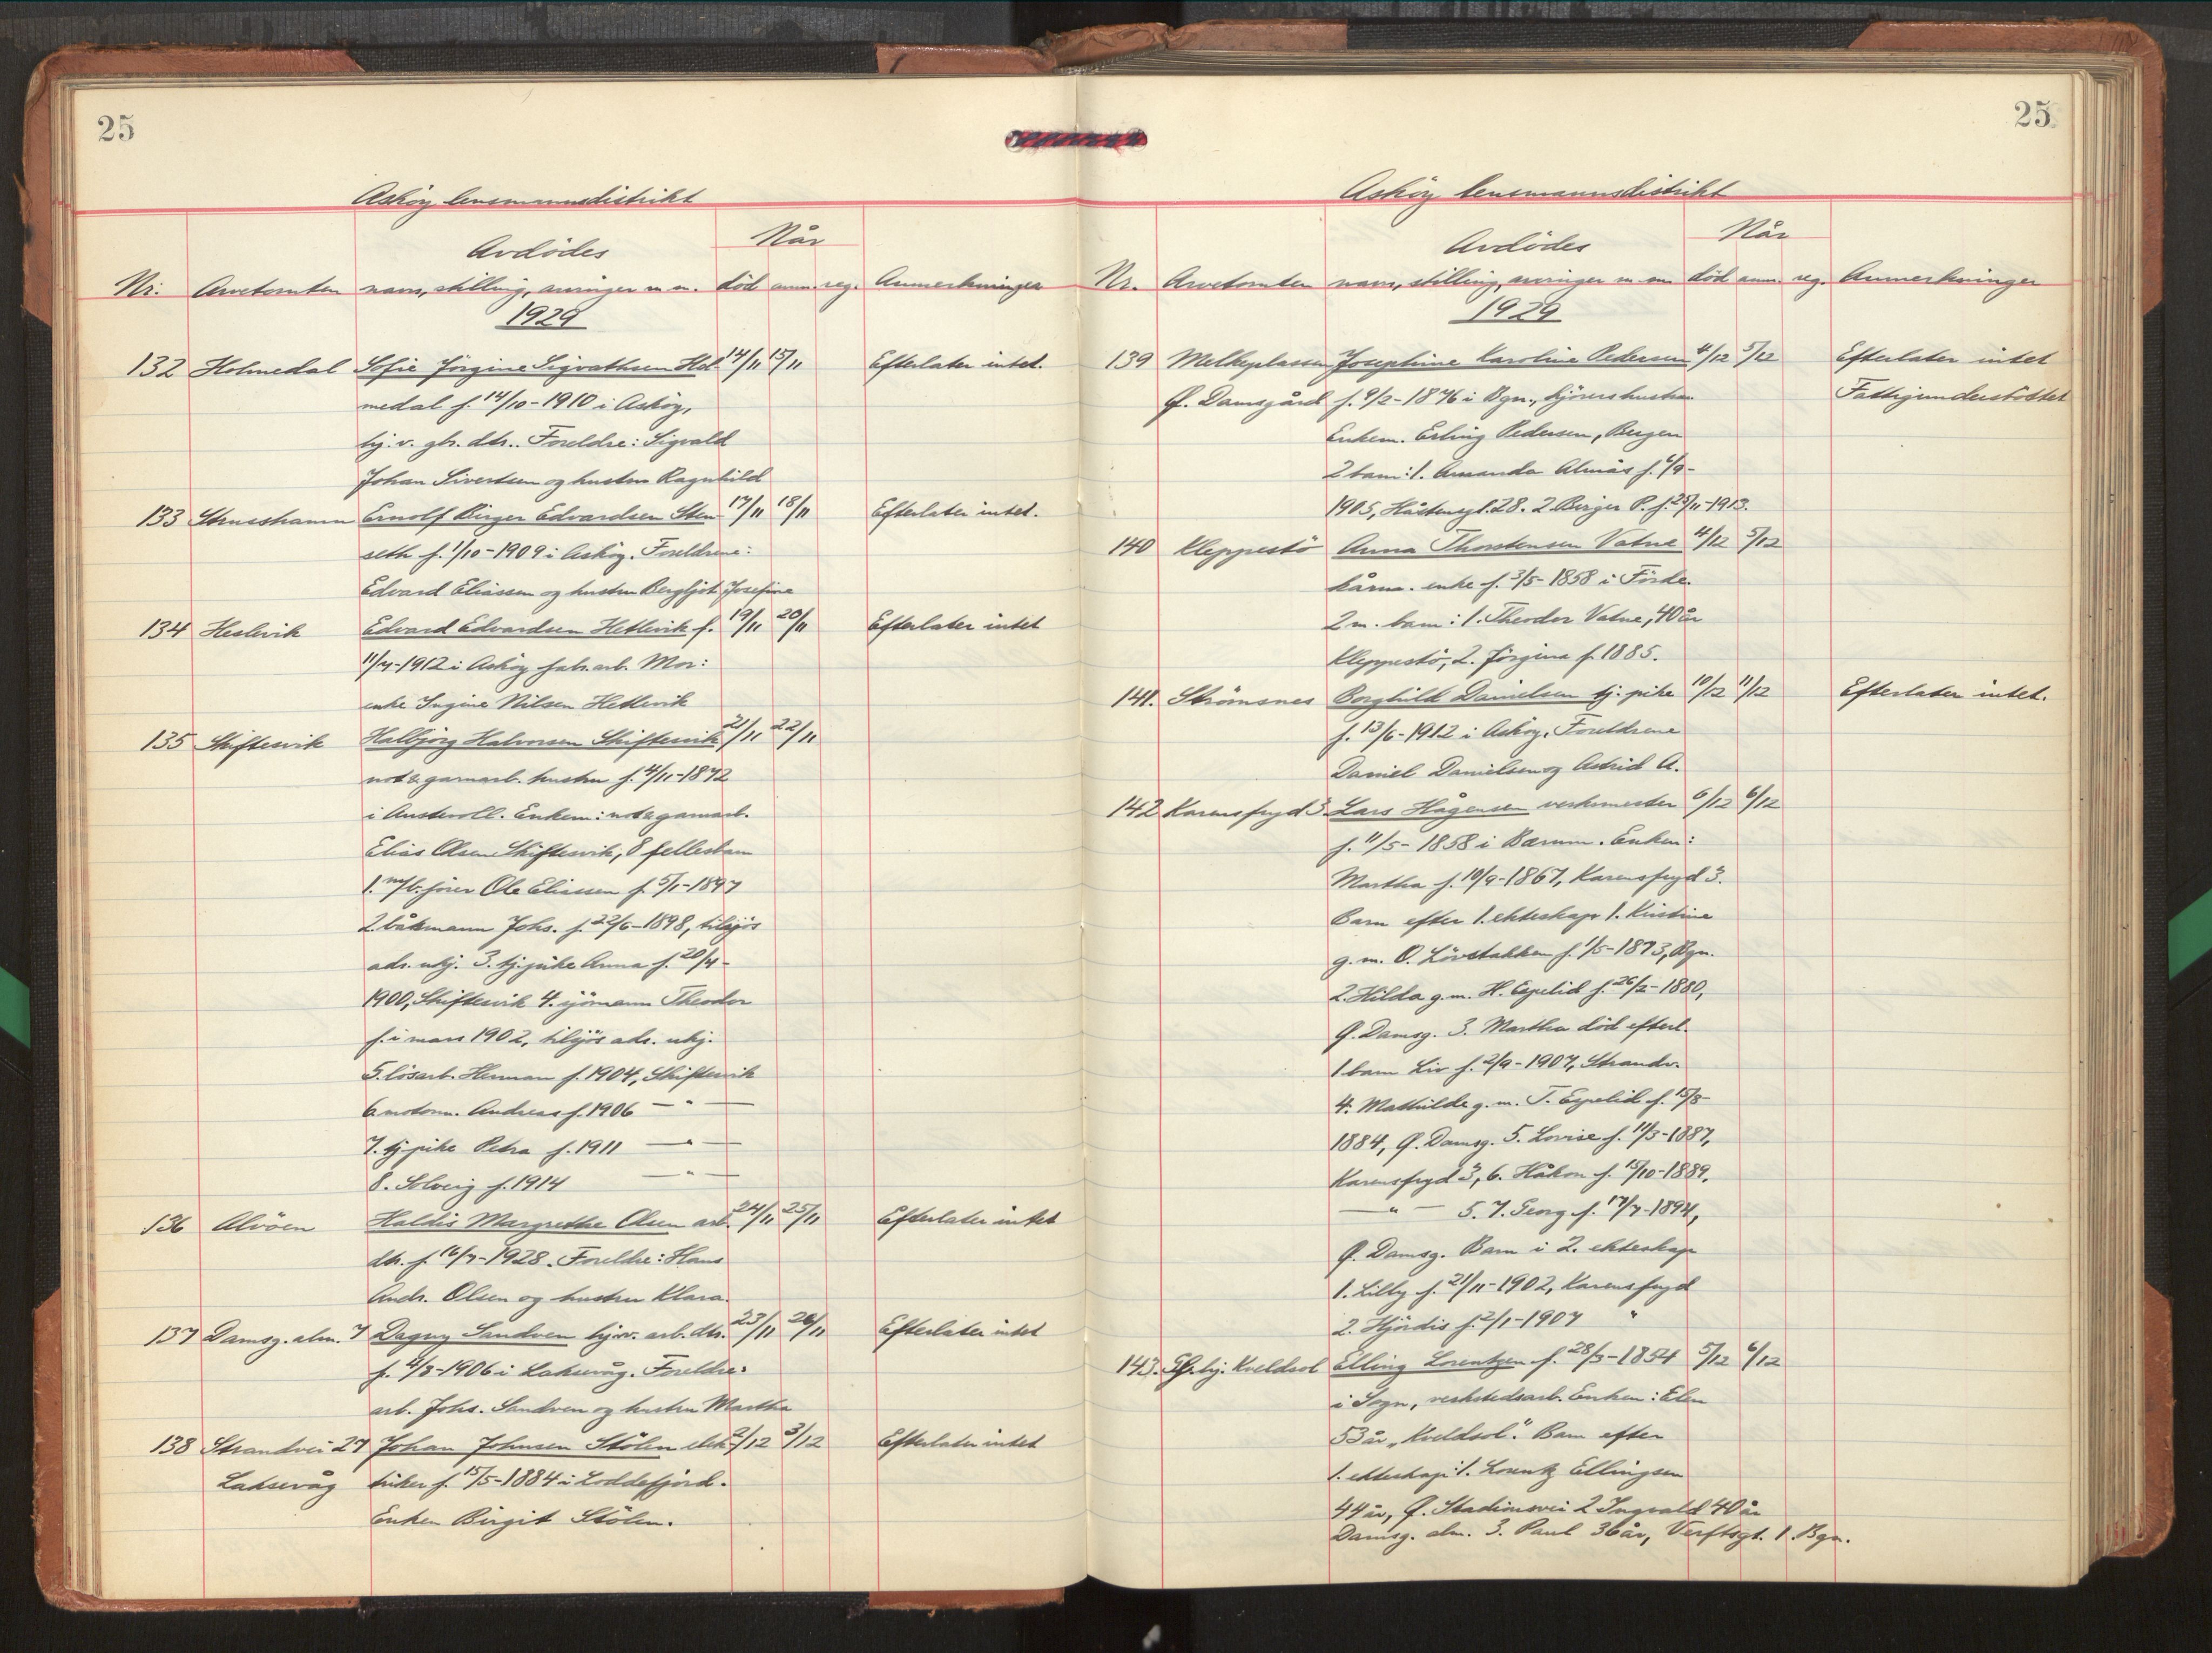 25
Askøy lensmannsdistrikt
Når
Avdödes
Nr. Arvetomten navn, stilling, arvinger m m. död anm. reg. Anmerkninger
1929
132 Holmedal Sofie Jörgine Sigvathsen Hol- 14/11 15/11 Efterlater intet.
medal f. 14/10-1910 i Asköy,
hj. v. gbr. dtr.. Foreldre: Sigvald
Johan Sivertsen og hustru Ragnhild
133 Strusshamn Ernolf Birger Edvardsen Sten- 17/11 18/11 Efterlater intet.
seth f. 1/10-1909 i Asköy. Foreldrene:
Edvard Eliassen og hustru Bergljot Josefine
134 Heslevik Edvard Edvardsen Hetlevik f. 19/11 20/11 Efterlater intet
11/7-1912 i Asköy fabr. arb. Mor:
enke Ingine Nilsen Hetlevik
135 Skiftesvik Halbjörg Halvorsen Skiftesvik 21/11 22/11
not & garnarb. hustru f. 4/11-1872
i Austevoll. Enkem: not & garnarb.
Elias Olsen Skiftesvik, 8 fellesbarn
1. m/b. förer Ole Eliassen f. 5/1-1897
2. båtsmann Johs. f. 22/6-1898, tilsjös
adr. ukj. 3. tj. pike Anna f. 20/4-
1900, Skiftesvik 4. sjömann Theodor
f. i mars 1902, tilsjös adr. ukj.
5. lösarb. Herman f. 1904, Skiftesvik
6. motorm. Andreas f. 1906 — " —
7. tj. pike Petra f. 1911 — " —
8. Solveig f. 1914 — " —
136 Alvöen Haldis Margrethe Olsen arb. 24/11 25/11 Efterlater intet
dtr. f. 16/7-1928. Foreldre: Hans
Andr. Olsen og hustru Klara.
137 Damsg. alm. 7 Dagny Sandven hjv. arb. dtr. 23/11 26/11 Efterlater intet
f. 4/3-1906 i Laksevåg. Foreldre:
arb. Johs. Sandven og hustru Martha
138 Strandvei 27 Johan Johnsen Stölen elek- 2/12 3/12 Efterlater intet
Laksevåg triker f. 15/5-1884 i Loddefjord.
Enken Birgit Stölen.
25
Asköy lensmannsdistrikt
Når
Avdödes
Nr. Arvetomten navn, stilling, arvinger m m. död anm. reg. Anmerkninger
1929
139 Melkeplassen Josephine Karoline Pedersen 4/12 5/12 Efterlater intet
Ø. Damsgård f. 9/2-1876 i Bgn., kjörers hustru Fattigunderstöttet
Enkem. Erling Pedersen, Bergen
2 barn: 1. Amanda Almås f. 6/9-
1905, Håsteinsgt. 28. 2. Birger P. f. 25/11-1913.
140 Kleppestö Anna Thorstensen Vatne 4/12 5/12
kårm. enke f. 3/5-1858 i Förde.
2 m. barn: 1. Theodor Vatne, 40 år
Kleppestö, 2. Jörgina f. 1885.
141. Strömsnes Borghild Danielsen tj. pike 10/12 11/12 Efterlater intet.
f. 13/6-1912 i Asköy. Foreldrene
Daniel Danielsen og Astrid A.
142 Karensfryd 3 Lars Hågensen verksmester 6/12 6/12
f. 11/5-1858 i Bærum. Enken:
Martha f. 10/9-1867, Karensfryd 3.
Barn efter 1. ekteskap 1. Kristine
g. m. O. Lövstakken f. 1/5-1873, Bgn.
2. Hilda g. m. H. Espelid f. 26/2-1880,
Ø. Damsg. 3. Martha död efterl.
1 barn Liv f. 2/9-1907, Strandv.
4. Mathilde g. m. T. Espelid f. 15/8-
1884, Ø. Damsg. 5. Lovise f. 11/3-1887,
Karensfryd 3, 6. Håkon f. 15/10-1889,
— " — 5. 7. Georg f. 17/7-1894,
Ø. Damsg. Barn i 2. ekteskap
1. Lilly f. 21/11-1902, Karensfryd
2. Hjördis f. 2/1-1907 "
143. hj. Kveldsol Elling Lorentzen f. 28/3-1854 5/12 6/12
i Sogn, verkstedsarb. Enken: Elen
53 år „Kveldsol". Barn efter
1. ekteskap: 1. Lorentz Ellingsen
44 år, Ø. Stadionsvei 2 Ingvald 40 år
Damsg. alm. 3. Paul 36 år, Verftsgt. 1. Bgn.